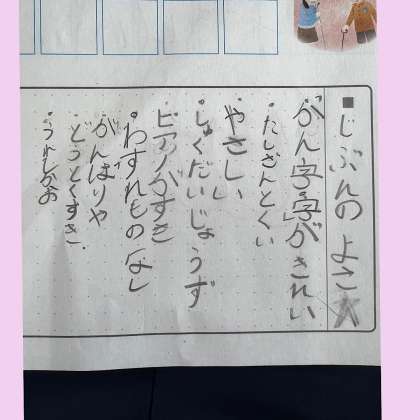 ■じぶんのよさ
・かん字の字がきれい
・たしざんとくい
・やさしい
・しゅくだいじょうず
・ピアノがすき
・わすれものなし
・がんばりや
・どうとくすき
・うれしがお